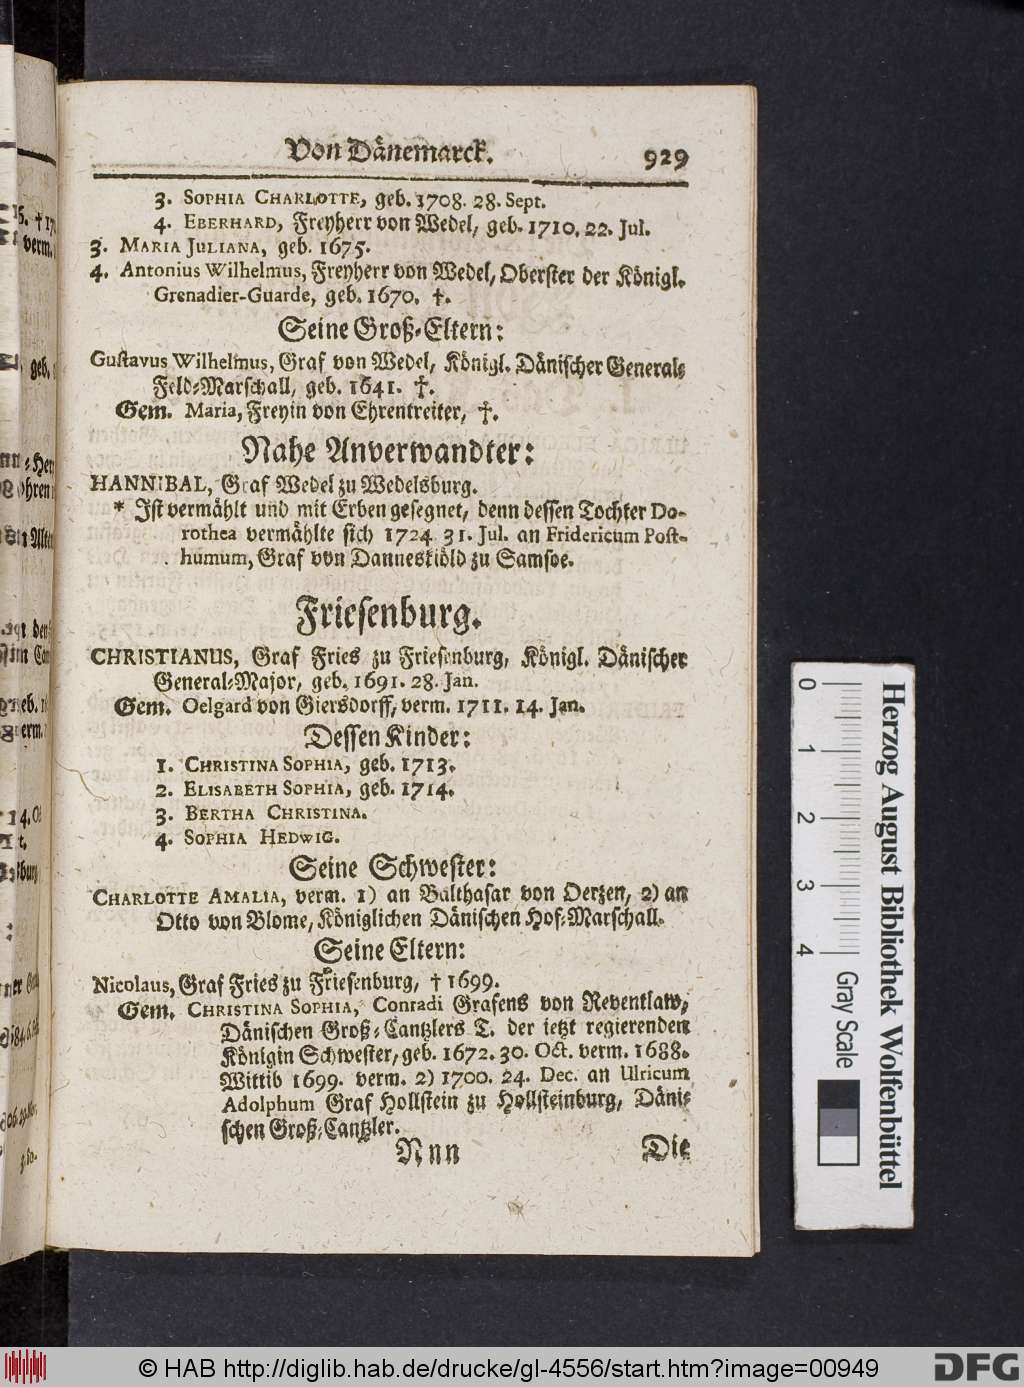 Von Dänemarck. 929
3. SOPHIA CHARLOTTE, geb. 1708. 28. Sept.
4. EBERHARD, Freyherr von Wedel, geb. 1710. 22. Jul.
3. MARIA JULIANA, geb. 1675.
4. Antonius Wilhelmus, Freyherr von Wedel, Oberster der Königl.
Grenadier-Guarde, geb. 1670. †.
Seine Groß-Eltern:
Gustavus Wilhelmus, Graf von Wedel, Königl. Dänischer General-
Feld-Marschall, geb. 1641. †.
Gem. Maria, Freyin von Ehrentreiter, †.
Nahe Anverwandter:
HANNIBAL, Graf Wedel zu Wedelsburg.
* Ist vermählt und mit Erben gesegnet, denn dessen Tochter Do-
rothea vermählte sich 1724 31. Jul. an Fridericum Post-
humum, Graf von Danneskiöld zu Samsoe.
Friesenburg.
CHRISTIANUS, Graf Fries zu Friesenburg, Königl. Dänischer
General-Major, geb. 1691. 28. Jan.
Gem. Oelgard von Giersdorff, verm. 1711. 14. Jan.
Dessen Kinder:
1. CHRISTINA SOPHIA, geb. 1713.
2. ELISABETH SOPHIA, geb. 1714.
3. BERTHA CHRISTINA.
4. SOPHIA HEDWIG.
Seine Schwester:
CHARLOTTE AMALIA, verm. 1) an Balthasar von Oertzen, 2) an
Otto von Blome, Königlichen Dänischen Hof-Marschall.
Seine Eltern:
Nicolaus, Graf Fries zu Friesenburg, † 1699.
Gem. CHRISTINA SOPHIA, Conradi Grafens von Reventlaw,
Dänischen Groß-Cantzlers T. der ietzt regierenden
Königin Schwester, geb. 1672. 30. Oct. verm. 1688.
Wittib 1699. verm. 2) 1700. 24. Dec. an Ulricum
Adolphum Graf Hollstein zu Hollsteinburg, Däni-
schen Groß-Cantzler.
Nnn Die
0 1 2 3 4 Gray Scale
Herzog August Bibliothek Wolfenbüttel
© HAB http://diglib.hab.de/drucke/gl-4556/start.htm?image=00949
DFG